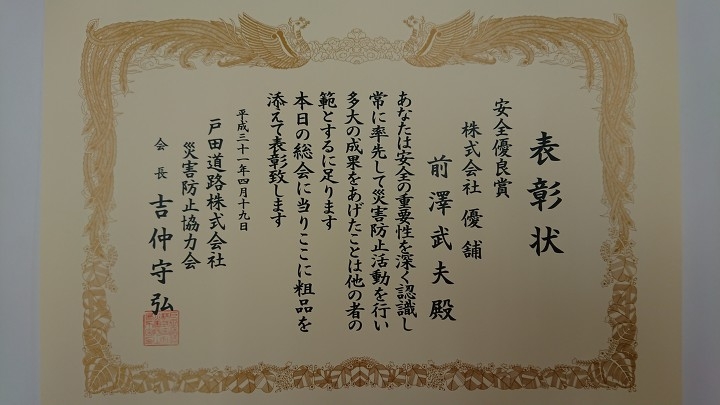 表彰状
安全優良賞
株式会社 優舗
前澤武夫殿
あなたは安全の重要性を深く認識し
常に率先して災害防止活動を行い
多大の成果をあげたことは他の者の
範とするに足ります
本日の総会に当りここに粗品を
添えて表彰致します
平成三十一年四月十九日
戸田道路株式会社
災害防止協力会
会長 吉仲守弘